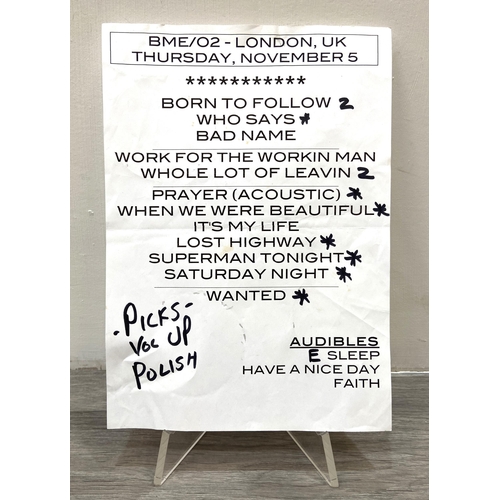 BME/02 - LONDON, UK
THURSDAY, NOVEMBER 5
***********
BORN TO FOLLOW 2
WHO SAYS *
BAD NAME
WORK FOR THE WORKIN MAN
WHOLE LOT OF LEAVIN 2
PRAYER (ACOUSTIC) *
WHEN WE WERE BEAUTIFUL *
IT'S MY LIFE
LOST HIGHWAY *
SUPERMAN TONIGHT *
SATURDAY NIGHT *
WANTED *
- PICKS -
VOC UP
POLISH
AUDIBLES
E SLEEP
HAVE A NICE DAY
FAITH